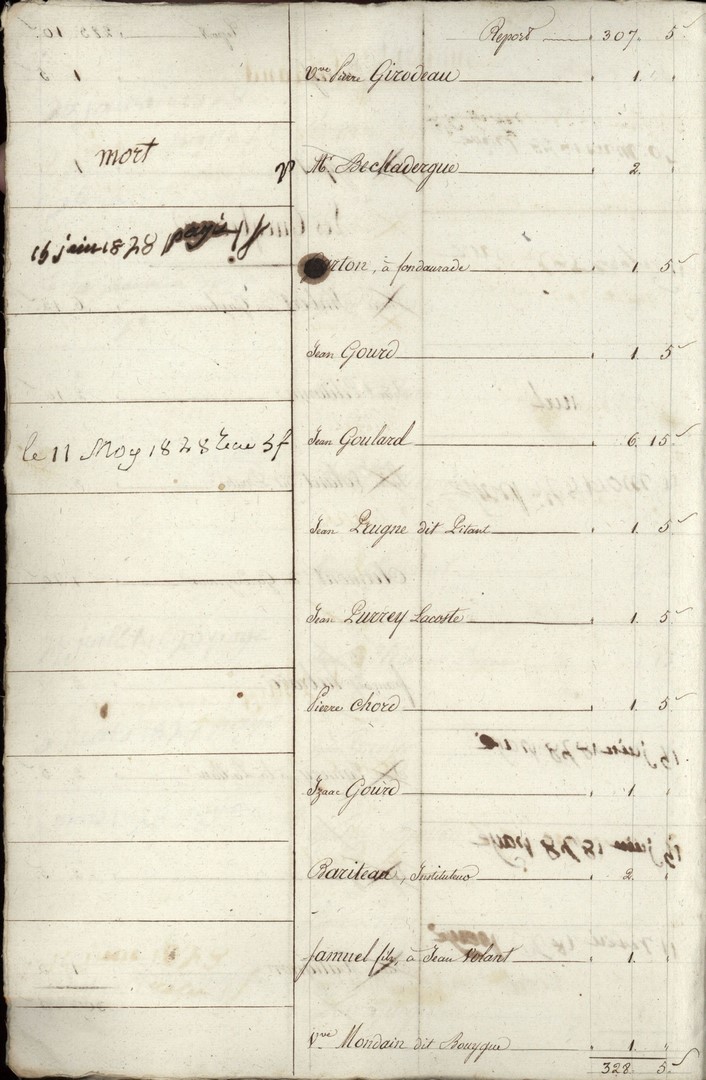 Report 307. 5
Vve Pierre Girodeau 1. "
mort
Mr Bechadergue 2.
15 juin 1828 payé
à fondaurade 1. 5
Jean Gourd 1. 5
le 11 May 1828 3f
Jean Goulard 6. 15
Jean Peugne dit Pitant 1. 5
Jean Purrey Lacoste 1. 5
Pierre Chord 1. 5
Izaac Gourd 1. "
Bariteau, Instituteur 2. "
Samuel fils, à Jean Volant 1. "
Vve Mondain dit Bouyque 1. "
328. 5